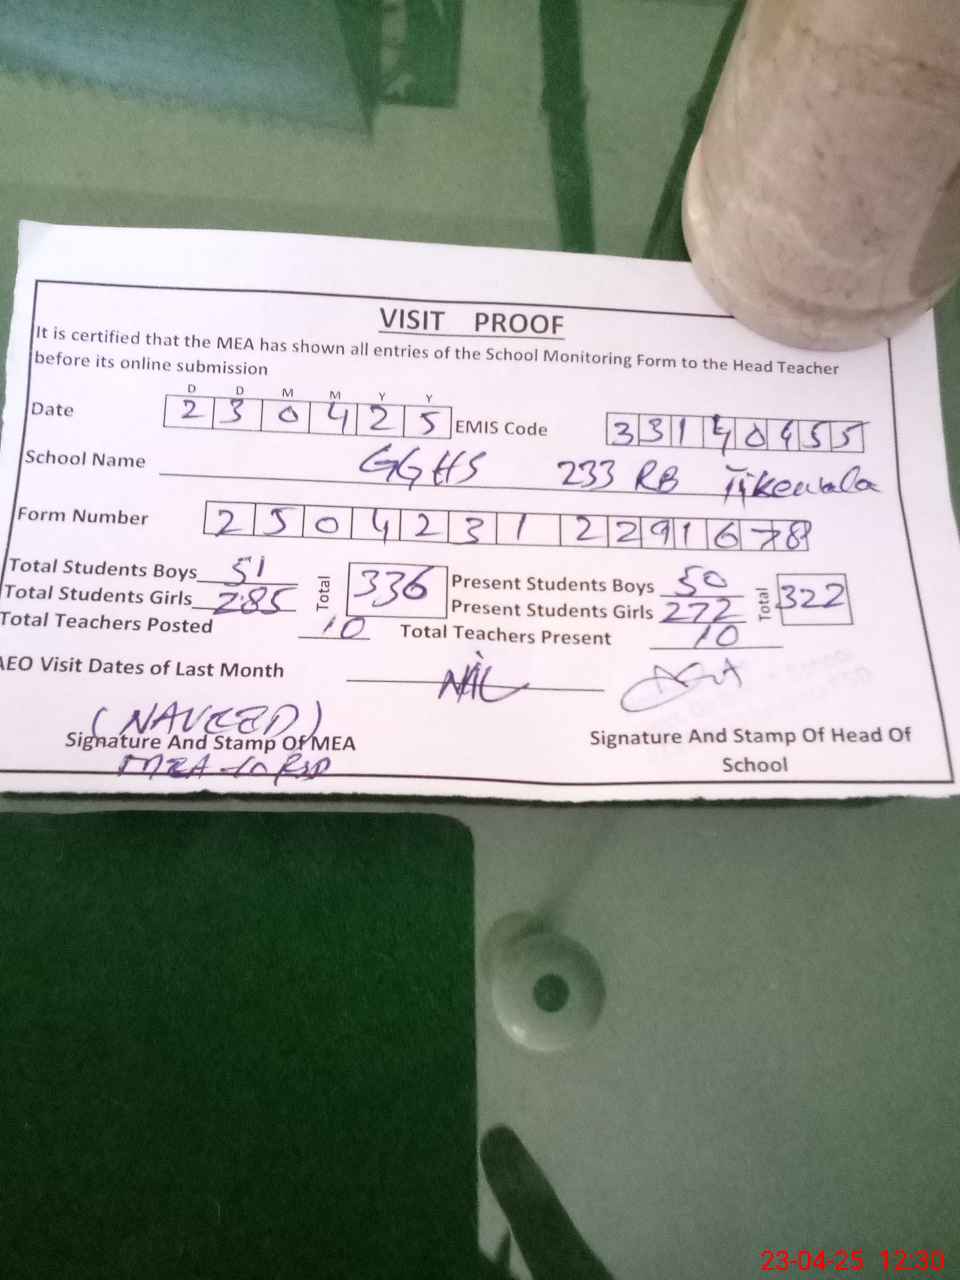 VISIT PROOF
It is certified that the MEA has shown all entries of the School Monitoring Form to the Head Teacher
before its online submission
D D M M Y Y
Date 2 3 0 4 2 5 EMIS Code 3 3 1 4 0 4 5 5
School Name GGHS 233 RB Tikewala
Form Number 2 5 0 4 2 3 1 2 2 9 1 6 7 8
Total Students Boys 51 Total 336 Present Students Boys 50 Total 322
Total Students Girls 285 Present Students Girls 272
Total Teachers Posted 10 Total Teachers Present 10
AEO Visit Dates of Last Month NIL
(NAVEED)
Signature And Stamp Of MEA Signature And Stamp Of Head Of
School
MEA
23-04-25 12:30